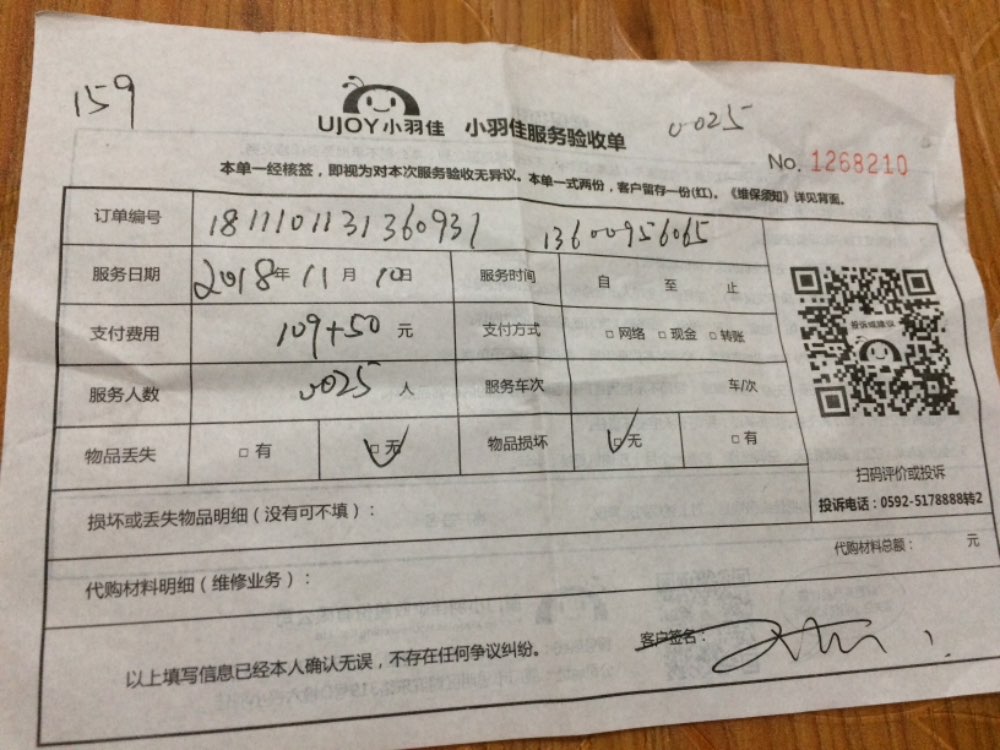 159
UJOY小羽佳 小羽佳服务验收单 0025
No. 1268210
本单一经核签，即视为对本次服务验收无异议。本单一式两份，客户留存一份(红)。《维保须知》详见背面。
订单编号 1811101131360931 13600956065
服务日期 2018年 11月 10日 服务时间 自 至 止
支付费用 109+50 元 支付方式 □网络 □现金 □转账
投诉或建议
服务人数 0025 人 服务车次 车/次
物品丢失 □有 □无 物品损坏 □无 □有
扫码评价或投诉
投诉电话：0592-5178888转2
损坏或丢失物品明细（没有可不填）：
代购材料总额： 元
代购材料明细（维修业务）：
以上填写信息已经本人确认无误，不存在任何争议纠纷。 客户签名：